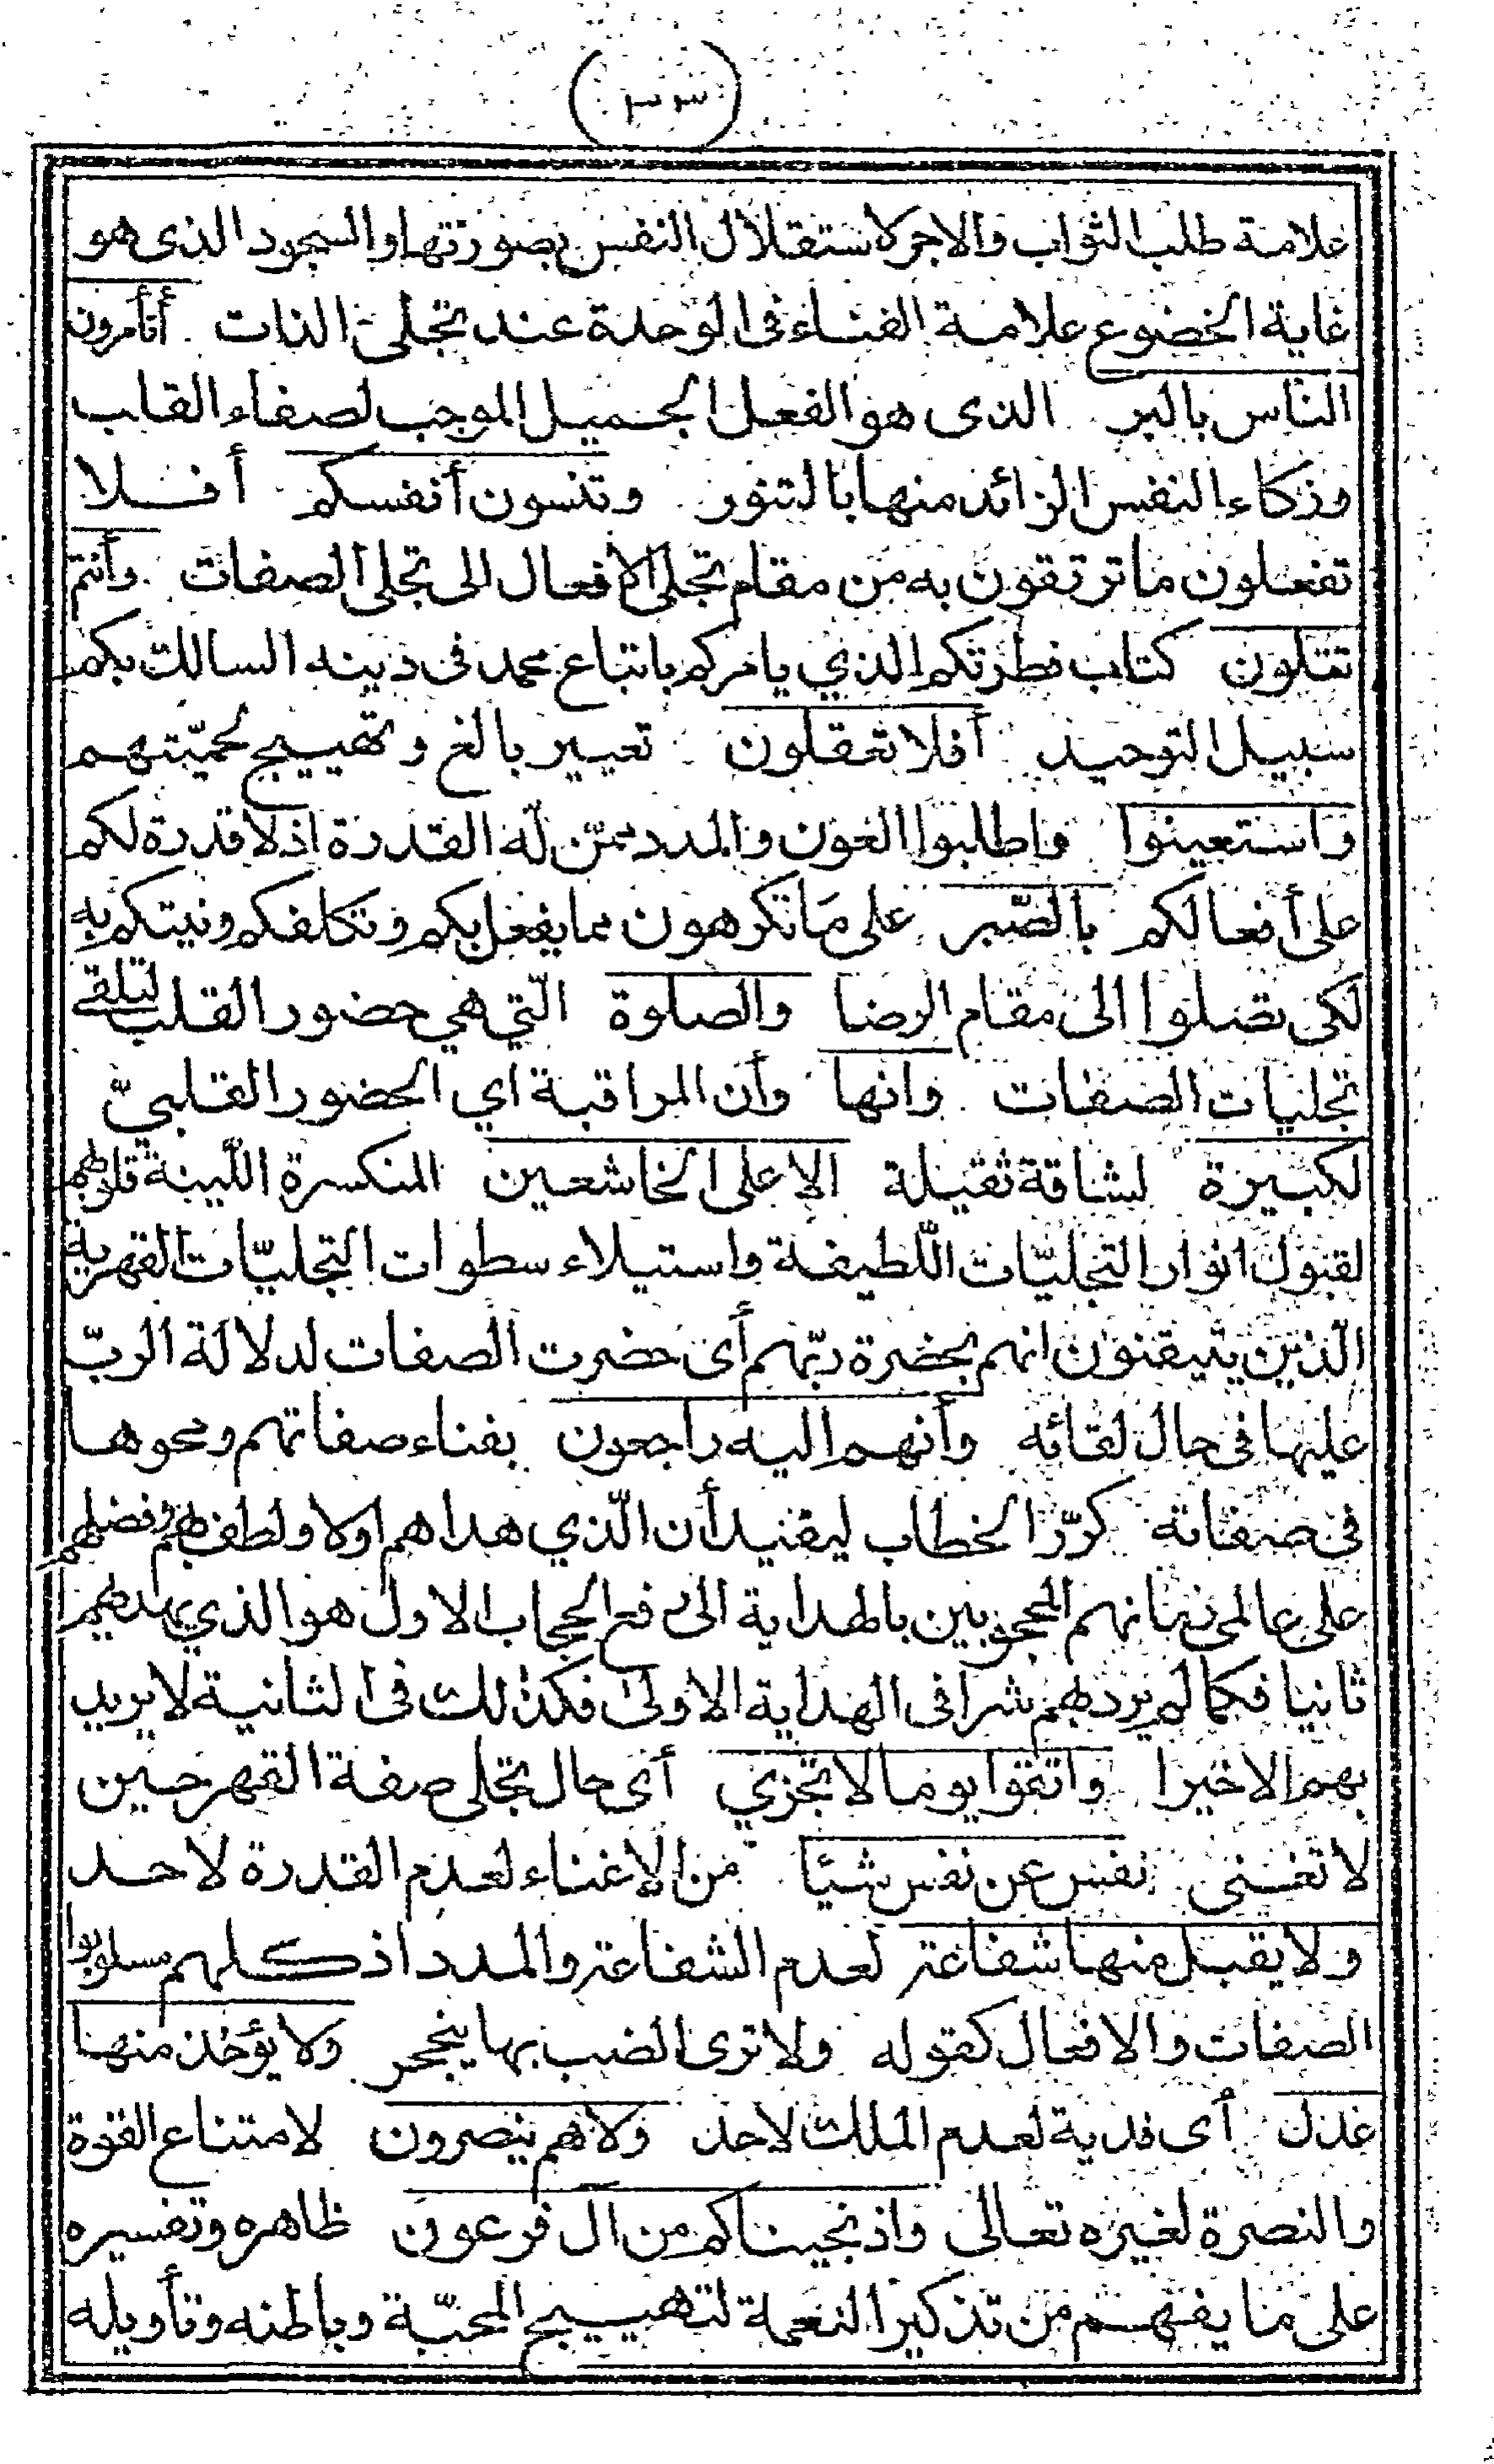 (٣٣)
علامة طلب الثواب والاجر لاستقلال النفس بصورتها والسجود الذى هو
غاية الخضوع علامة الفناء فى الوحدة عند تجلى الذات أتأمرون
الناس بالبر الذى هو الفعل الجميل الموجب لصفاء القلب
وزكاء النفس الزائد منها بالتنور وتنسون أنفسكم أفلا
تفعلون ما ترتقون به من مقام تجلى الافعال الى تجلى الصفات وأنتم
تتلون كتاب فطرتكم الذي يامركم باتباع محمد فى دينه السالك بكم
سبيل التوحيد أفلا تعقلون تعيير بالغ وتهييج لحميّتهم
واستعينوا واطلبوا العون والمدد ممّن له القدرة اذ لا قدرة لكم
على أفعالكم بالصّبر على ما تكرهون مما يفعل بكم وتكلفكم ونيتكم به
لكى تصلوا الى مقام الرضا والصلوة الّتي هي حضور القلب لتلقى
تجليات الصفات وانها وأن المراقبة اي الحضور القلبيّ
لكبيرة لشاقة ثقيلة الا على الخاشعين المنكسرة اللّينة قلوبهم
لقبول انوار التجليّات اللّطيفة واستيلاء سطوات التجليّات القهرية
الّذين يتيقنون انهم بحضرة ربّهم أى حضرت الصفات لدلالة الربّ
عليها فى حال لقائه وأنهم اليه راجعون بفناء صفاتهم ومحوها
فى صفاته كرّر الخطاب ليفيد أن الّذي هداهم اولا ولطف بهم وفضلهم
على عالمى زمانهم المحجوبين بالهداية الى رفع الحجاب الاول هو الذي يهديهم
ثانيا فكما لم يرد بهم شرا فى الهداية الاولى فكذلك فى الثانية لا يريد
بهم الا خيرا واتقوا يوما لا تجزي أى حال تجلى صفة القهر حين
لا تغنى نفس عن نفس شيئا من الاغناء لعدم القدرة لاحد
ولا يقبل منها شفاعة لعدم الشفاعة والمدد اذ كلهم مسلوبوا
الصفات والافعال كقوله ولا ترى الضب بها ينجحر ولا يؤخذ منها
عدل أى فدية لعدم الملك لاحد ولا هم ينصرون لامتناع القوة
والنصرة لغيره تعالى واذ نجيناكم من آل فرعون ظاهره وتفسيره
على ما يفهم من تذكير النعمة لتهييج المحبّة وباطنه وتأويله